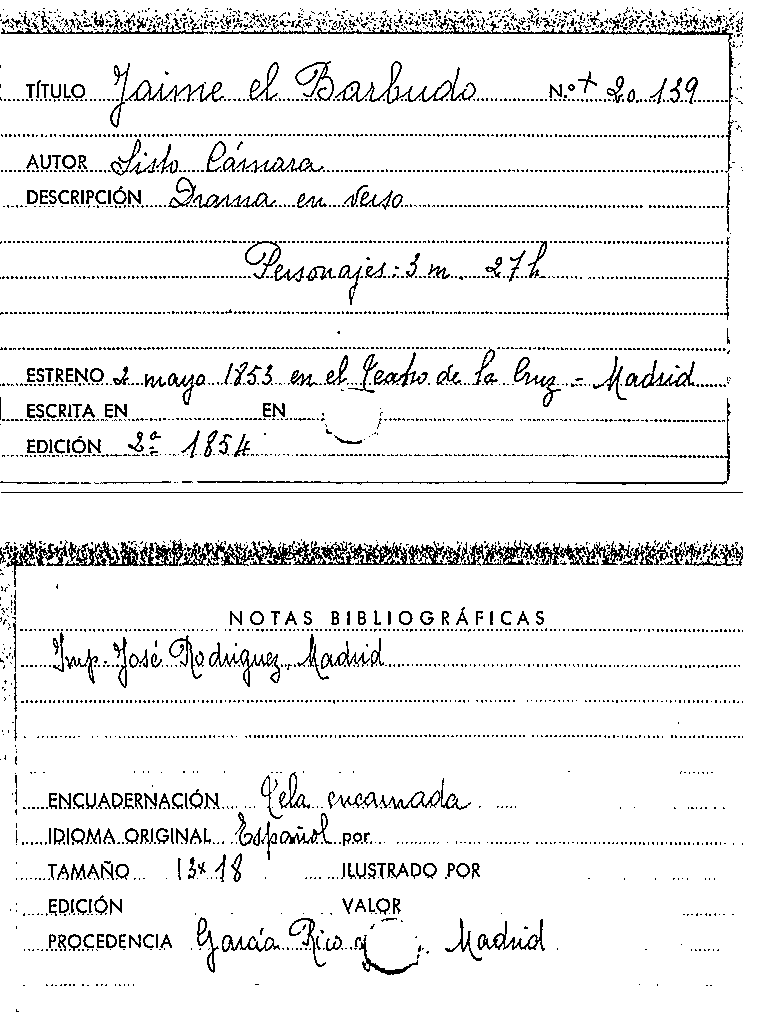 TÍTULO Jaime el Barbudo N.º + 20.139
AUTOR Sisto Cámara
DESCRIPCIÓN Drama en verso
Personajes: 3 m. 27 h
ESTRENO 2 mayo 1853 en el Teatro de la Cruz - Madrid
ESCRITA EN EN
EDICIÓN 2ª 1854
NOTAS BIBLIOGRÁFICAS
Imp. José Rodriguez. Madrid
ENCUADERNACIÓN Tela encarnada
IDIOMA ORIGINAL Español por
TAMAÑO 13x18 ILUSTRADO POR
EDICIÓN VALOR
PROCEDENCIA García Rico y Madrid